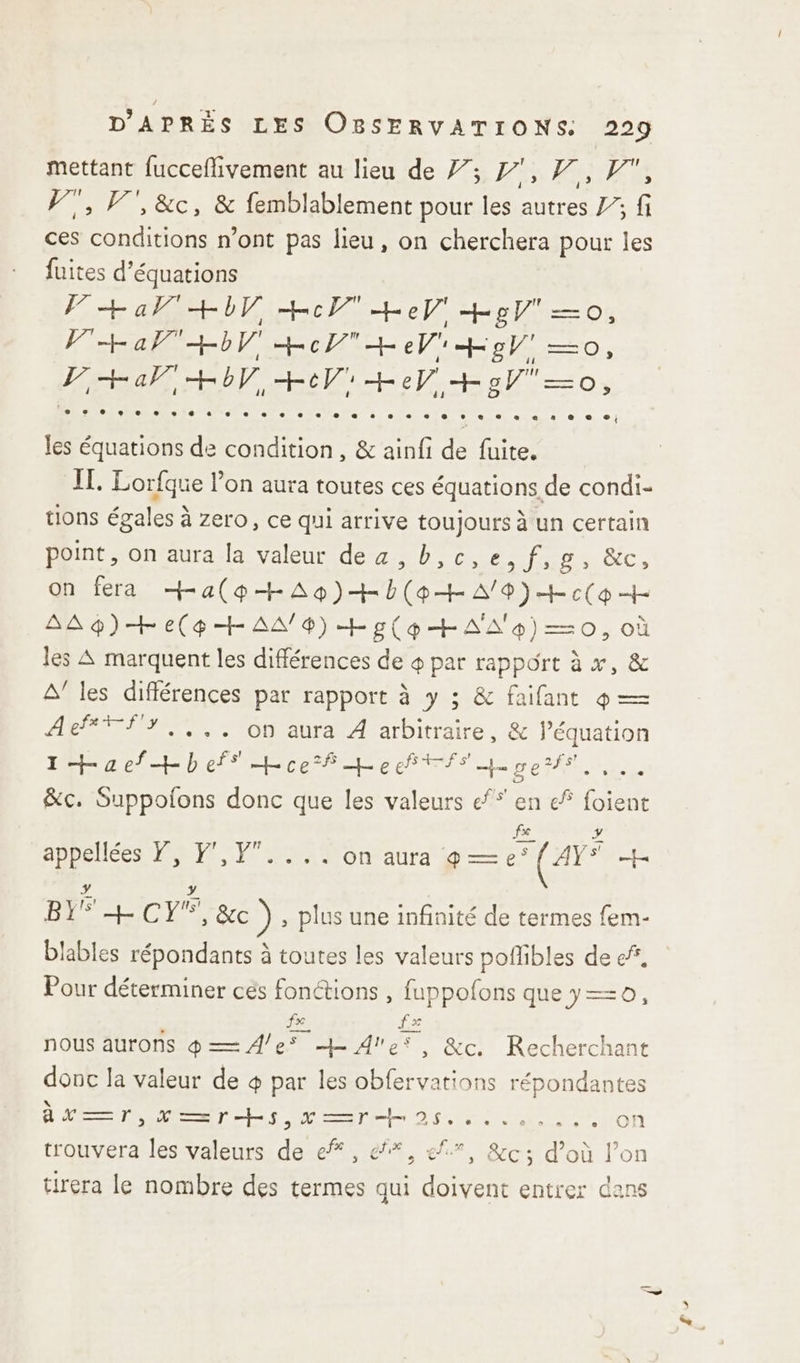 D'APRÈS LES OBSERVATIONS. 229
mettant ſucceſſivement au lieu de V; V', V, V",
V", V', &c, & ſemblablement pour les autres V; ſi
ces conditions n'ont pas lieu, on cherchera pour les
ſuites d'équations
V + aV' + bV, + cV" + eV', + gV" = 0,
V' + aV" + bV' + cV" + eV' + gV' = 0,
V, + aV', + bV,, + cV' + eV, + gV" = 0,
. . . . . . . . . . . . . . . . . . . . . . . . . .
les équations de condition, & ainſi de ſuite.
II. Lorſque l'on aura toutes ces équations de condi-
tions égales à zero, ce qui arrive toujours à un certain
point, on aura la valeur de a, b, c, e, f, g, &c,
on fera + a(φ + Δφ) + b(φ + Δ'φ) + c(φ +
ΔΔφ) + e(φ + ΔΔ'φ) + g(φ + Δ'Δ'φ) = 0, où
les Δ marquent les différences de φ par rappórt à x, &
Δ' les différences par rapport à y ; & faiſant φ =
Ae^{fx+f'y} .... on aura A arbitraire, & l'équation
1 + a e^{f} + b e^{f's'} + ce^{2fs} + e e^{fs+f's'} + ge^{2f's'} ....
&c. Suppoſons donc que les valeurs e^{f's'} en e^{fs} ſoient
appellées Y, Y', Y" .... on aura φ = e^{fx/s} (AY^{y/s'} +
BY'^{y/s'} + CY"^{y/s'}, &c ), plus une infinité de termes ſem-
blables répondants à toutes les valeurs poſſibles de e^{fs}.
Pour déterminer ces fonctions, ſuppoſons que y = 0,
nous aurons φ = A'e^{fx/s} + A"e^{fx/s}, &c. Recherchant
donc la valeur de φ par les obſervations répondantes
à x = r, x = r + s, x = r + 2s. . . . . . . . . on
trouvera les valeurs de e^{fx}, e^{f'x}, e^{f"x}, &c; d'où l'on
tirera le nombre des termes qui doivent entrer dans